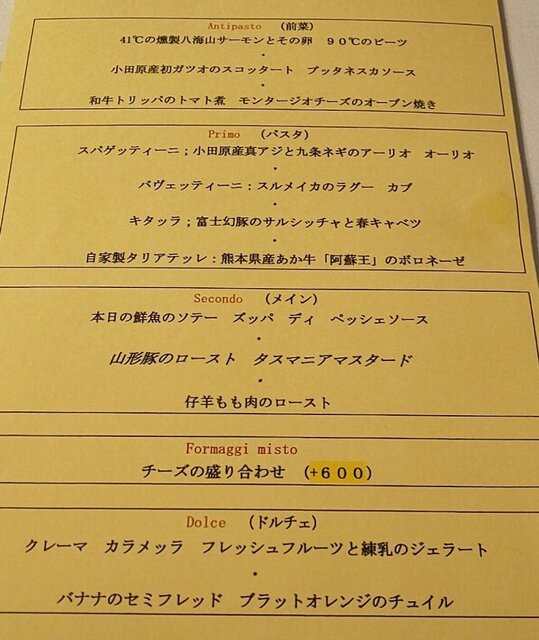 Antipasto （前菜）
41℃の燻製八海山サーモンとその卵　９０℃のビーツ
・
小田原産初ガツオのスコッタート　プッタネスカソース
・
和牛トリッパのトマト煮　モンタージオチーズのオーブン焼き
Primo （パスタ）
スパゲッティーニ；小田原産真アジと九条ネギのアーリオ　オーリオ
・
バヴェッティーニ：スルメイカのラグー　カブ
・
キタッラ；富士幻豚のサルシッチャと春キャベツ
・
自家製タリアテッレ：熊本県産あか牛「阿蘇王」のボロネーゼ
Secondo （メイン）
本日の鮮魚のソテー　ズッパ　ディ　ペッシェソース
・
山形豚のロースト　タスマニアマスタード
・
仔羊もも肉のロースト
Formaggi misto
チーズの盛り合わせ　(+６００)
Dolce （ドルチェ）
クレーマ　カラメッラ　フレッシュフルーツと練乳のジェラート
・
バナナのセミフレッド　ブラットオレンジのチュイル